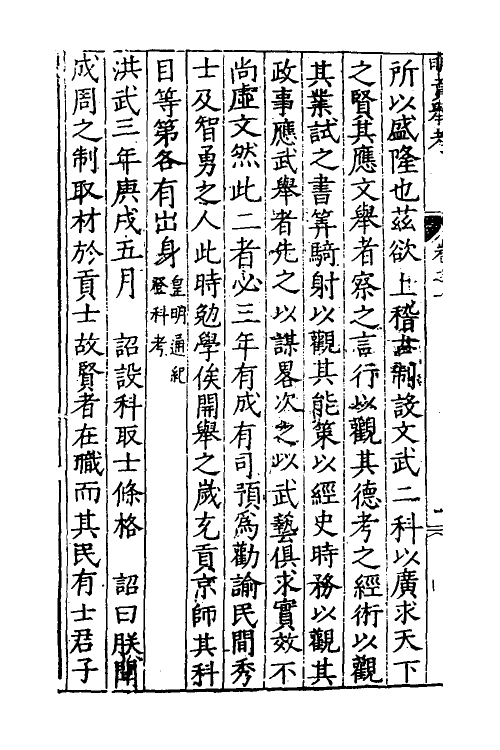 明貢舉考 卷之一
所以盛隆也茲欲上稽古制設文武二科以廣求天下
之賢其應文舉者察之言行以觀其德考之經術以觀
其業試之書筭騎射以觀其能策以經史時務以觀其
政事應武舉者先之以謀畧次之以武藝俱求實效不
尚虛文然此二者必三年有成有司預為勸諭民間秀
士及智勇之人此時勉學俟開舉之歲充貢京師其科
目等第各有出身皇明通紀登科考
洪武三年庚戌五月 詔設科取士條格 詔曰朕聞
成周之制取材於貢士故賢者在職而其民有士君子